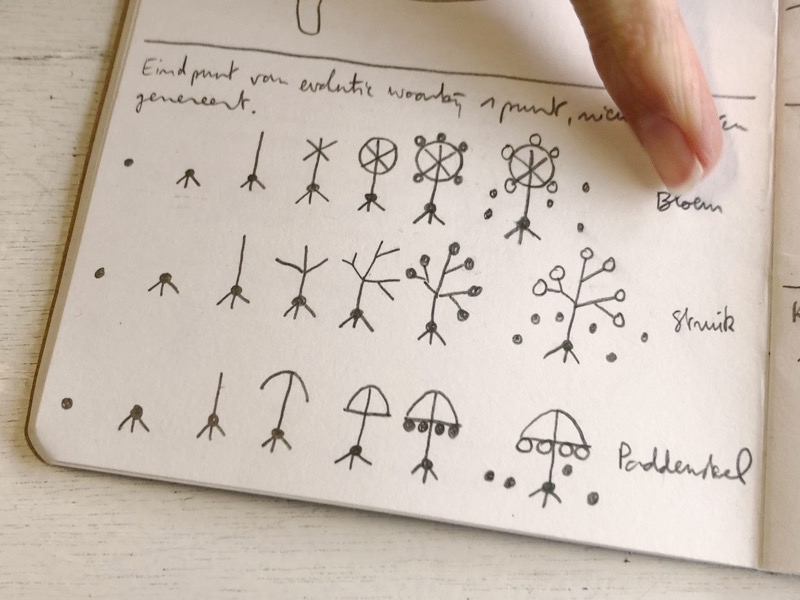 Eindpunt van evolutie waarbij 1 punt,
genereert.
Bloem
Struik
Paddenstoel